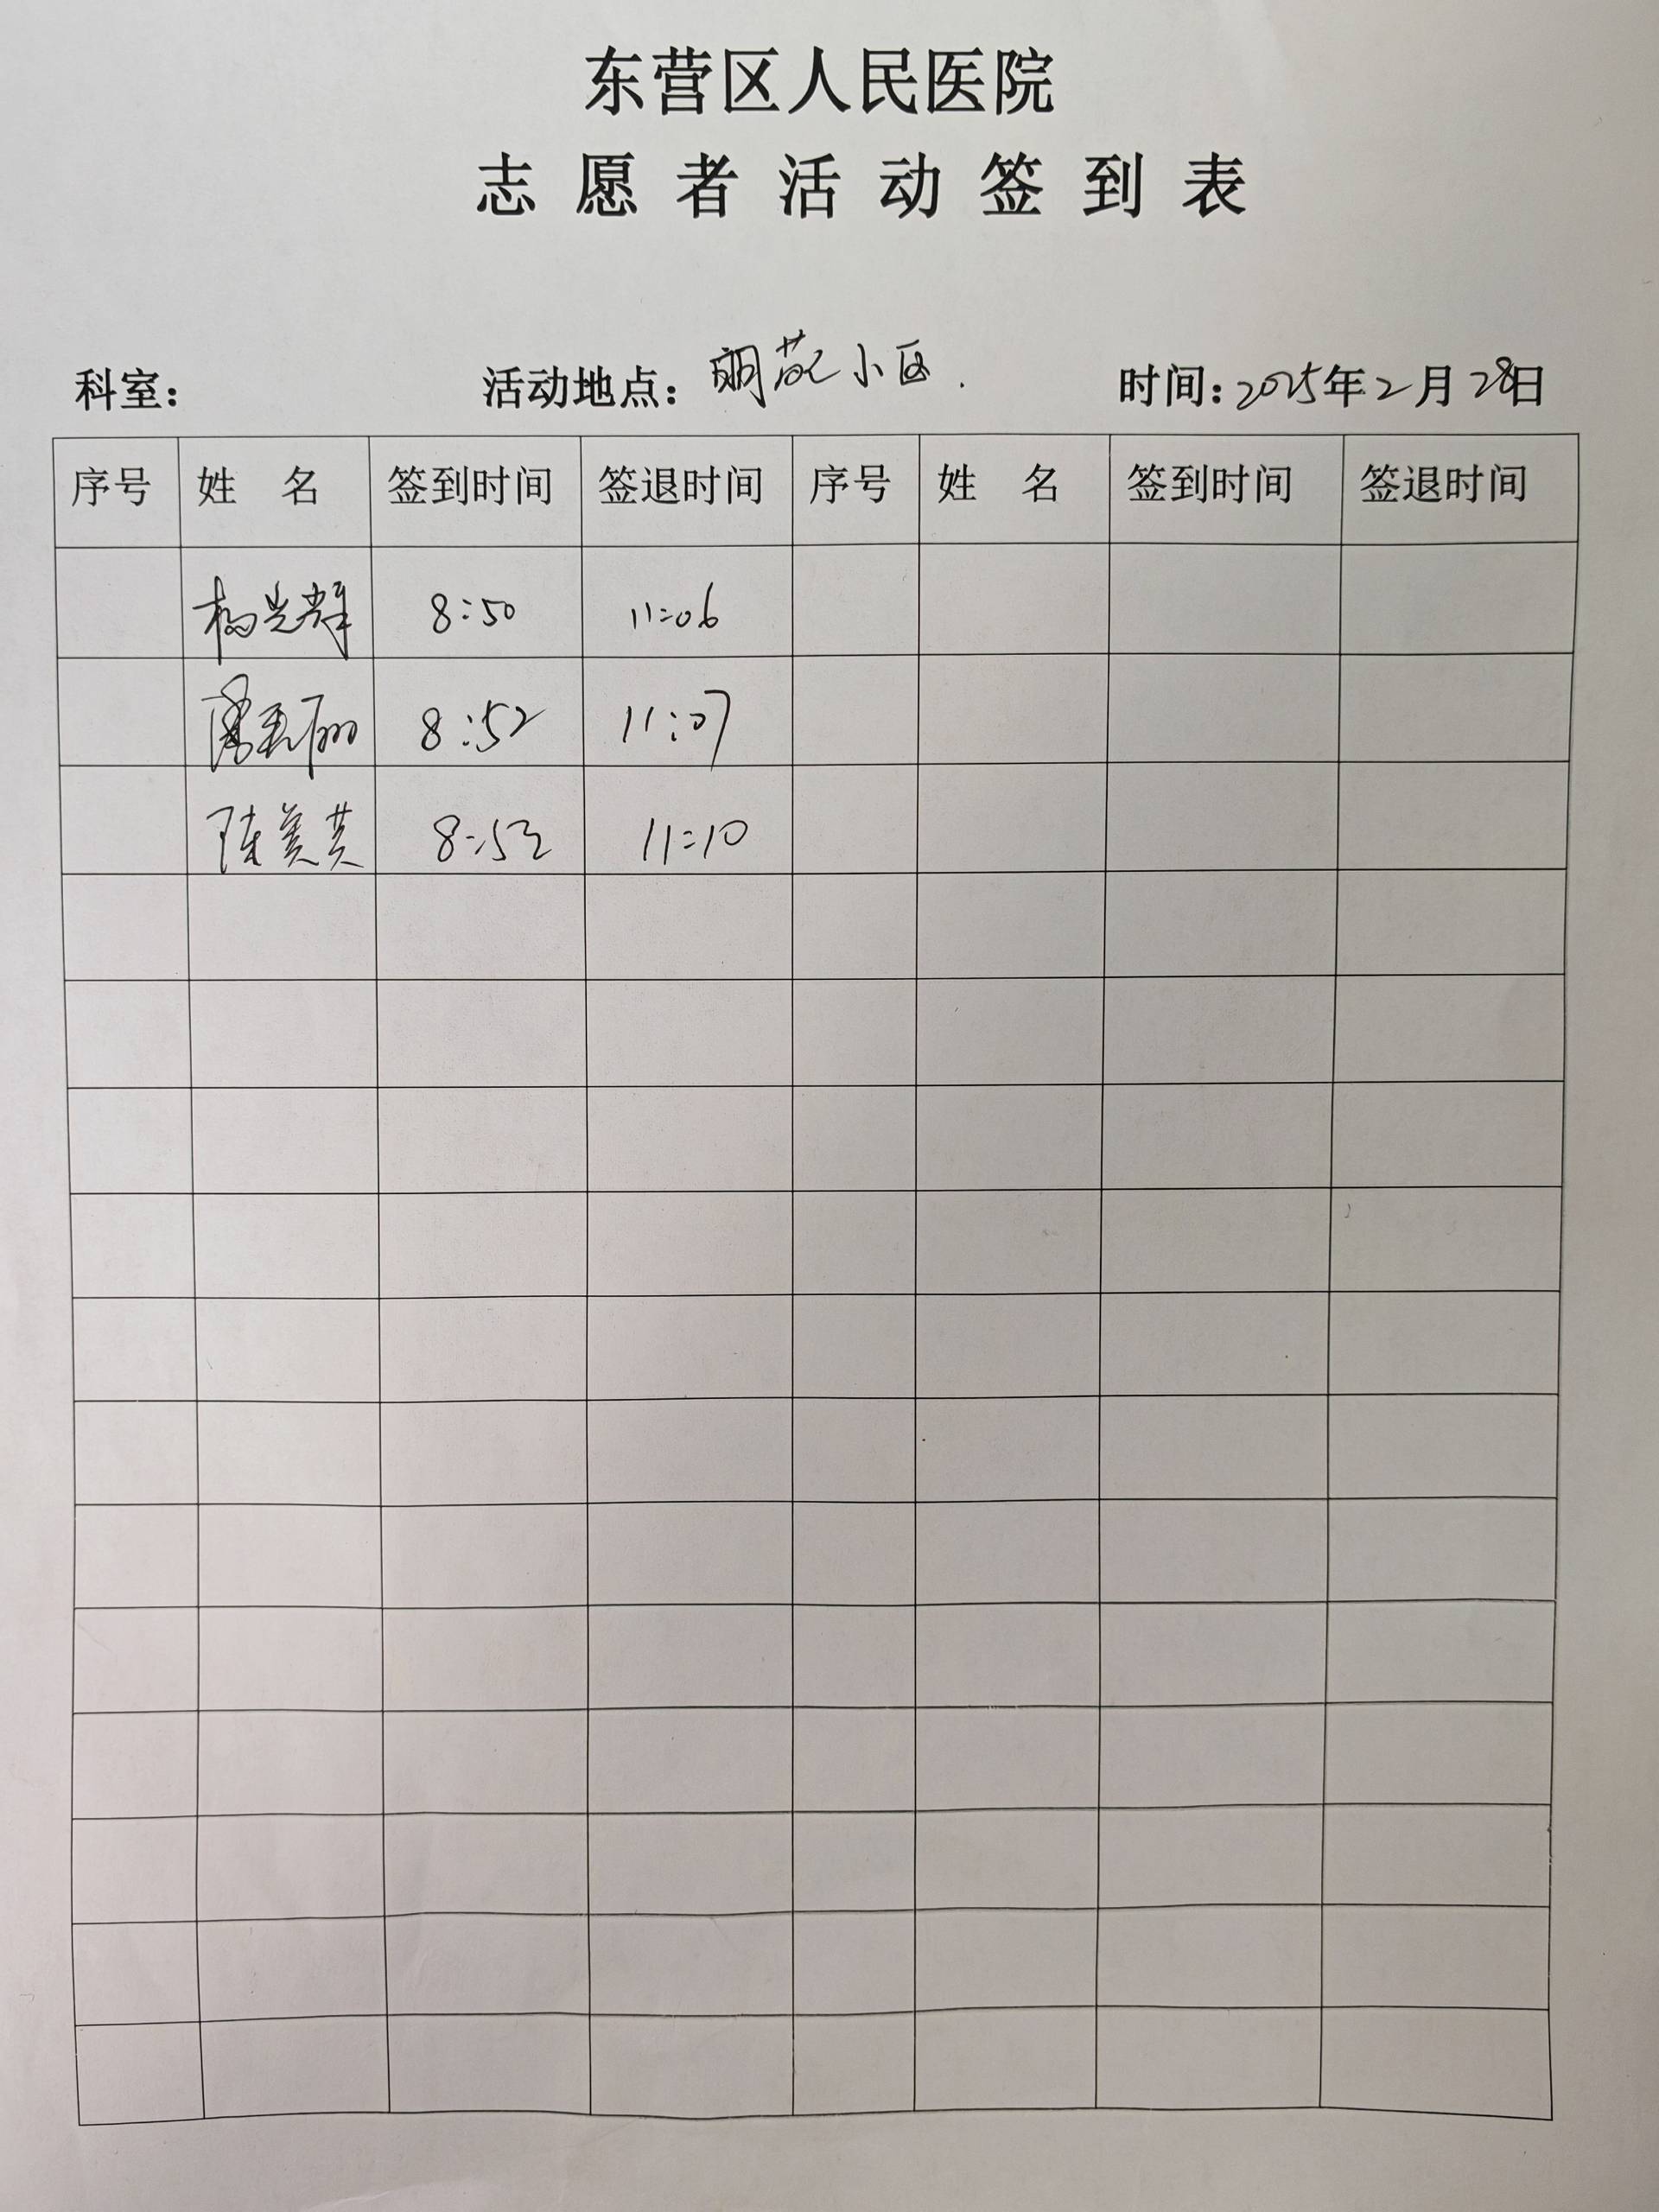 东营区人民医院
志愿者活动签到表
科室： 活动地点： 小区. 时间：2025年2月28日
序号 姓名 签到时间 签退时间 序号 姓名 签到时间 签退时间
杨光群 8:50 11:06
8:52 11:07
陈美芸 8:53 11:10